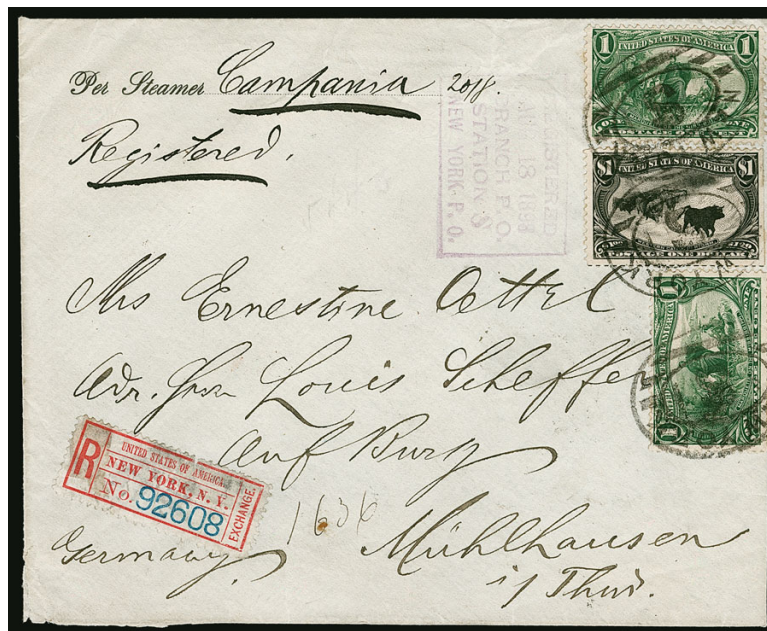 Per Steamer Campania 2018.
Registered.
REGISTERED
18 1898
RANCH P.O.
STATION
NEW YORK P.O.
1 UNITED STATES OF AMERICA 1
POSTAGE ONE CENT
$1 UNITED STATES OF AMERICA $1
POSTAGE ONE DOLLAR
1 UNITED STATES OF AMERICA 1
Mrs Ernestine Oettel
Adr. Herrn Louis Scheffel
Auf Burg
Mühlhausen
i/ Thür.
Germany
1636
R
UNITED STATES OF AMERICA.
NEW YORK, N. Y.
No. 92608
EXCHANGE.